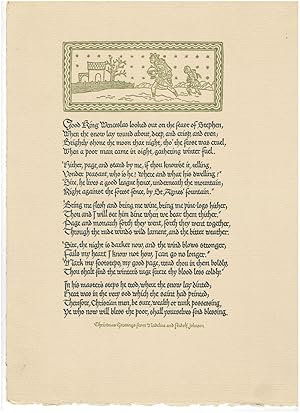 Good King Wenceslas looked out on the feast of Stephen,
When the snow lay round about, deep, and crisp, and even;
Brightly shone the moon that night, tho' the frost was cruel,
When a poor man came in sight, gathering winter fuel.
"Hither, page, and stand by me, if thou knowest it, telling,
Yonder peasant, who is he? Where and what his dwelling?"
"Sire, he lives a good league hence, underneath the mountain;
Right against the forest fence, by St. Agnes' fountain."
"Bring me flesh and bring me wine, bring me pine logs hither,
Thou and I will see him dine when we bear them thither."
Page and monarch forth they went, forth they went together,
Through the rude wind's wild lament, and the bitter weather.
"Sire, the night is darker now, and the wind blows stronger,
Fails my heart I know not how, I can go no longer."
"Mark my footsteps, my good page, tread thou in them boldly,
Thou shalt find the winter's rage freeze thy blood less coldly."
In his master's steps he trod, where the snow lay dinted;
Heat was in the very sod which the saint had printed;
Therefore, Christian men, be sure, wealth or rank possessing,
Ye who now will bless the poor, shall yourselves find blessing.
Christmas Greetings from and Johnson